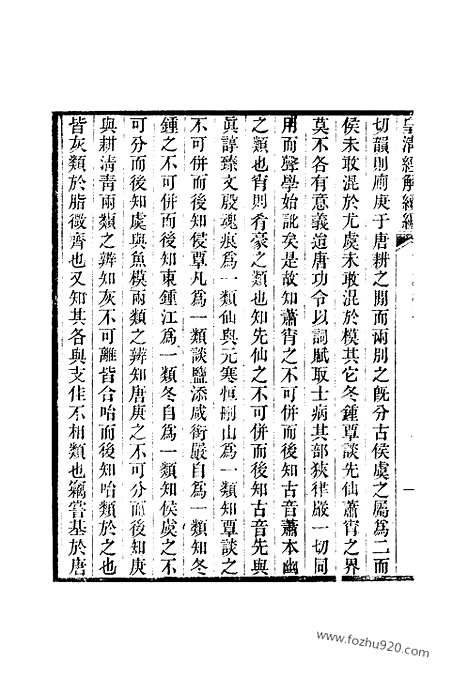 皇淸經解續編
切韻則廁庚于唐耕之閒而兩別之旣分古侯虞之屬爲二而
侯未敢混於尤虞未敢混於模其它冬鍾覃談先仙蕭宵之界
莫不各有意義逭唐功令以詞賦取士病其部狹律嚴一切同
用而聲學始訛矣是故知蕭宵之不可併而後知古音蕭本幽
之類也宵則肴豪之類也知先仙之不可併而後知古音先與
眞諄臻文殷魂痕爲一類仙與元寒桓刪山爲一類知覃談之
不可併而後知侵覃凡爲一類談鹽添咸銜嚴自爲一類知冬
鍾之不可併而後知東鍾江爲一類冬自爲一類知侯虞之不
可分而後知虞與魚模兩類之辨知唐庚之不可分而後知庚
與耕淸靑兩類之辨知灰不可離皆合咍而後知咍類於之也
皆灰類於脂微齊也又知其各與支佳不相類也竊嘗基於唐
www.fozhu920.com